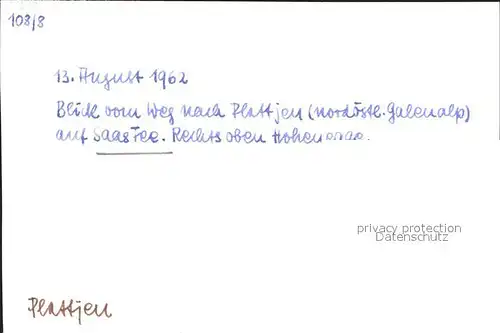 108/8
13. August 1962
Blick vom Weg nach Plattjen (nordöstl. Galenalp)
auf Saas Fee. Rechts oben Hohen
privacy protection
Datenschutz
Plattjen